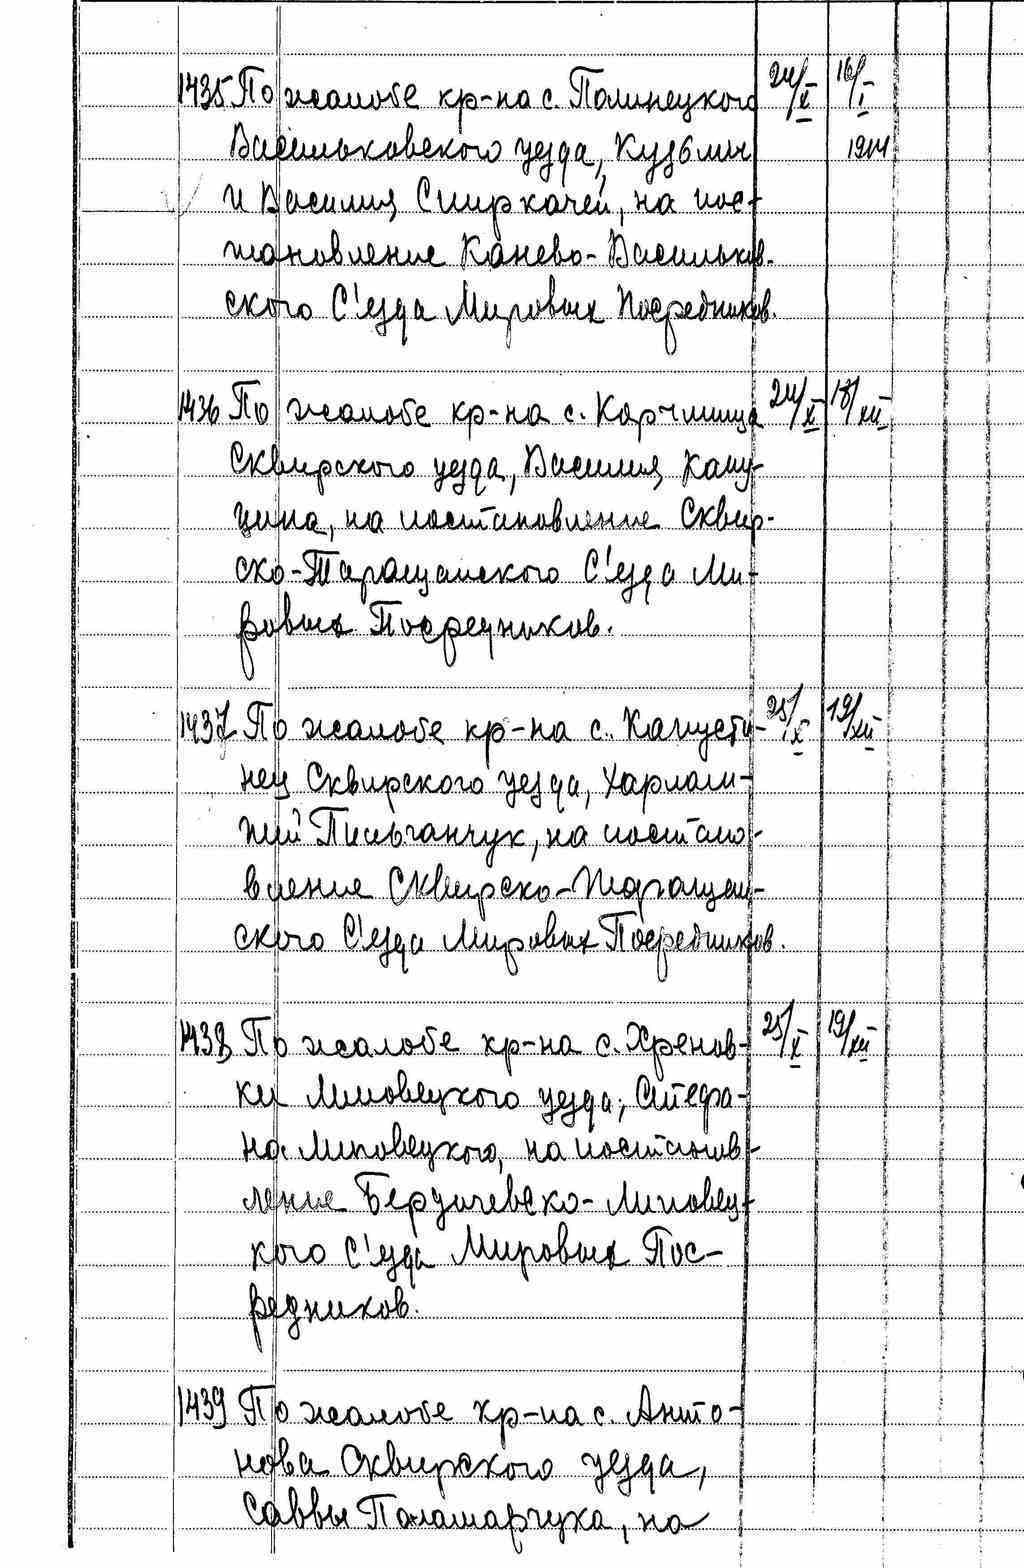 1435 По жалобе кр-на с. Полинецкого 24/X 16/I
Васильковского уезда, Кузьмы 1914
и Василия Сширкачей, на пос-
тановление Канево-Васильков-
ского С'езда Мировых Посредников.
1436 По жалобе кр-на с. Карчмища 24/X 18/XII
Сквирского уезда, Василия Капу-
цина, на постановление Сквир-
ско-Таращанского С'езда Ми-
ровых Посредников.
1437 По жалобе кр-на с. Капусти- 25/X 19/XII
нец Сквирского уезда, Харлам-
пий Пильганчук, на постано-
вление Сквирско-Таращан-
ского С'езда Мировых Посредников.
1438 По жалобе кр-на с. Хренов- 25/X 19/XII
ки Липовецкого уезда, Стефа-
на Липовецкого, на постанов-
ление Бердичевско-Липовец-
кого С'езда Мировых Пос-
редников.
1439 По жалобе кр-на с. Анто-
нова Сквирского уезда,
Саввы Паламарчука, на